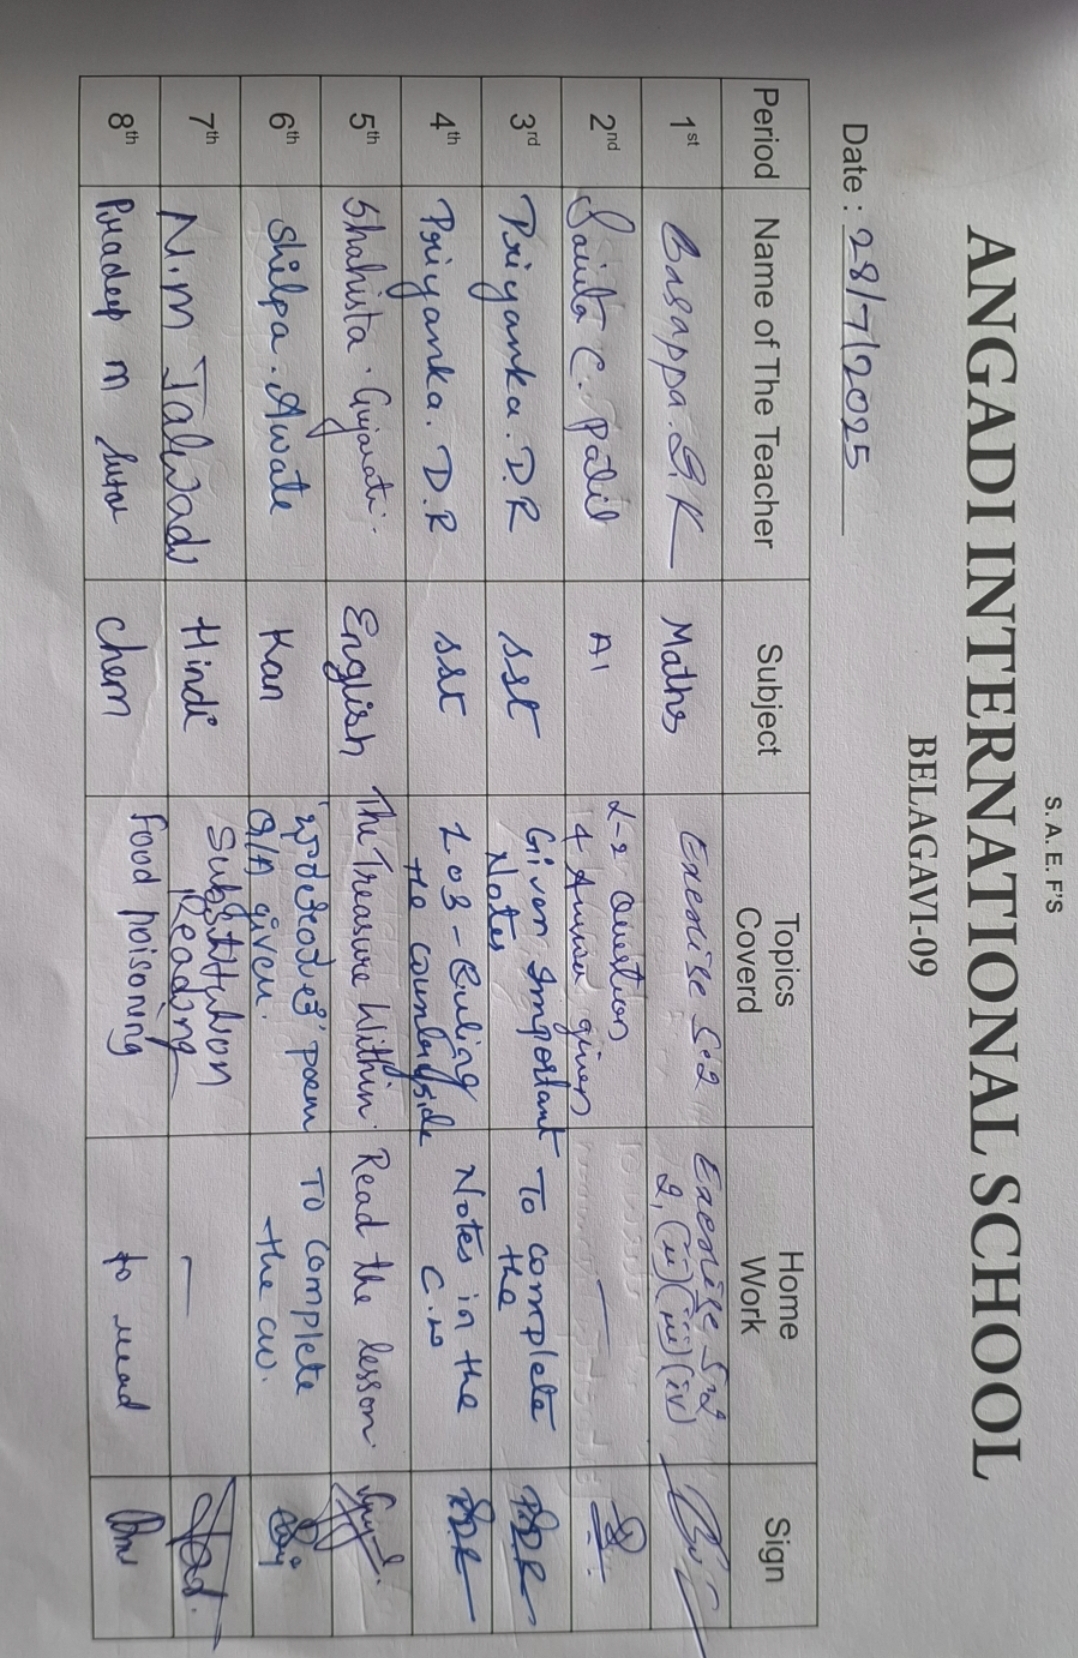 S. A. E. F'S
ANGADI INTERNATIONAL SCHOOL
BELAGAVI-09
Date : 28/7/2025
Period Name of The Teacher Subject Topics Coverd Home Work Sign
1st Basappa. S. K Maths Exercise 5.2 Exercise 5.2
2, (ii) (iii) (iv)
2nd Savita C. Patil AI L-2 Question
& Answer given —
3rd Priyanka. D.R SSt Given Important To complete
Notes the PDR
4th Priyanka. D.R SSt L03-Ruling Notes in the
the countryside C.W PDR
5th Shahista. Gujarati. English The Treasure Within. Read the lesson.
6th Shilpa. Awate Kan poem To complete
Q/A given. the cw.
7th N.M Talwad Hindi Substitution —
Reading
8th Pradeep m Sutar chem Food poisoning to read